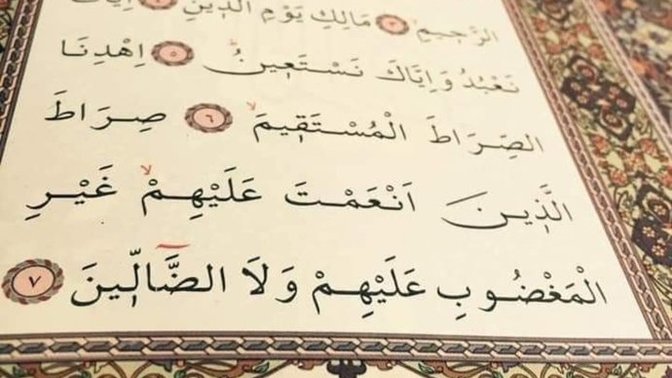 الرَّحِيمِ ﴿٣﴾ مَالِكِ يَوْمِ الدِّينِ ﴿٤﴾ اِيَّاكَ
نَعْبُدُ وَاِيَّاكَ نَسْتَعِينُ ﴿٥﴾ اِهْدِنَا
الصِّرَاطَ الْمُسْتَقِيمَ ﴿٦﴾ صِرَاطَ
الَّذِينَ اَنْعَمْتَ عَلَيْهِمْ غَيْرِ
الْمَغْضُوبِ عَلَيْهِمْ وَلَا الضَّالِّينَ ﴿٧﴾